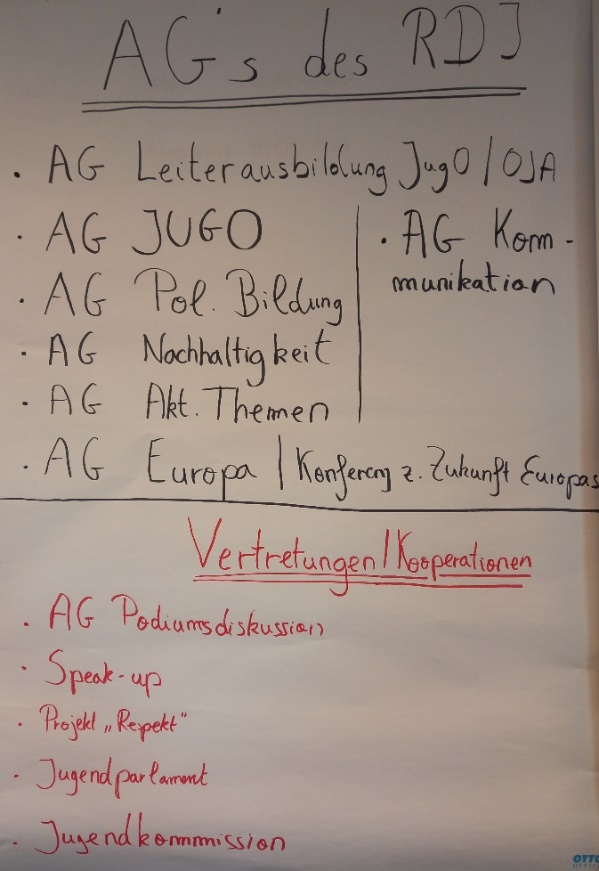 AG's des RDJ
· AG Leiterausbildung JugO / OJA
· AG JUGO
· AG Pol. Bildung
· AG Nachhaltigkeit
· AG Akt. Themen
· AG Kom-
munikation
· AG Europa | Konferenz z. Zukunft Europas
Vertretungen/Kooperationen
· AG Podiumsdiskussion
· Speak-up
· Projekt „Respekt"
· Jugendparlament
· Jugendkommmission
OTTO
OFFICE